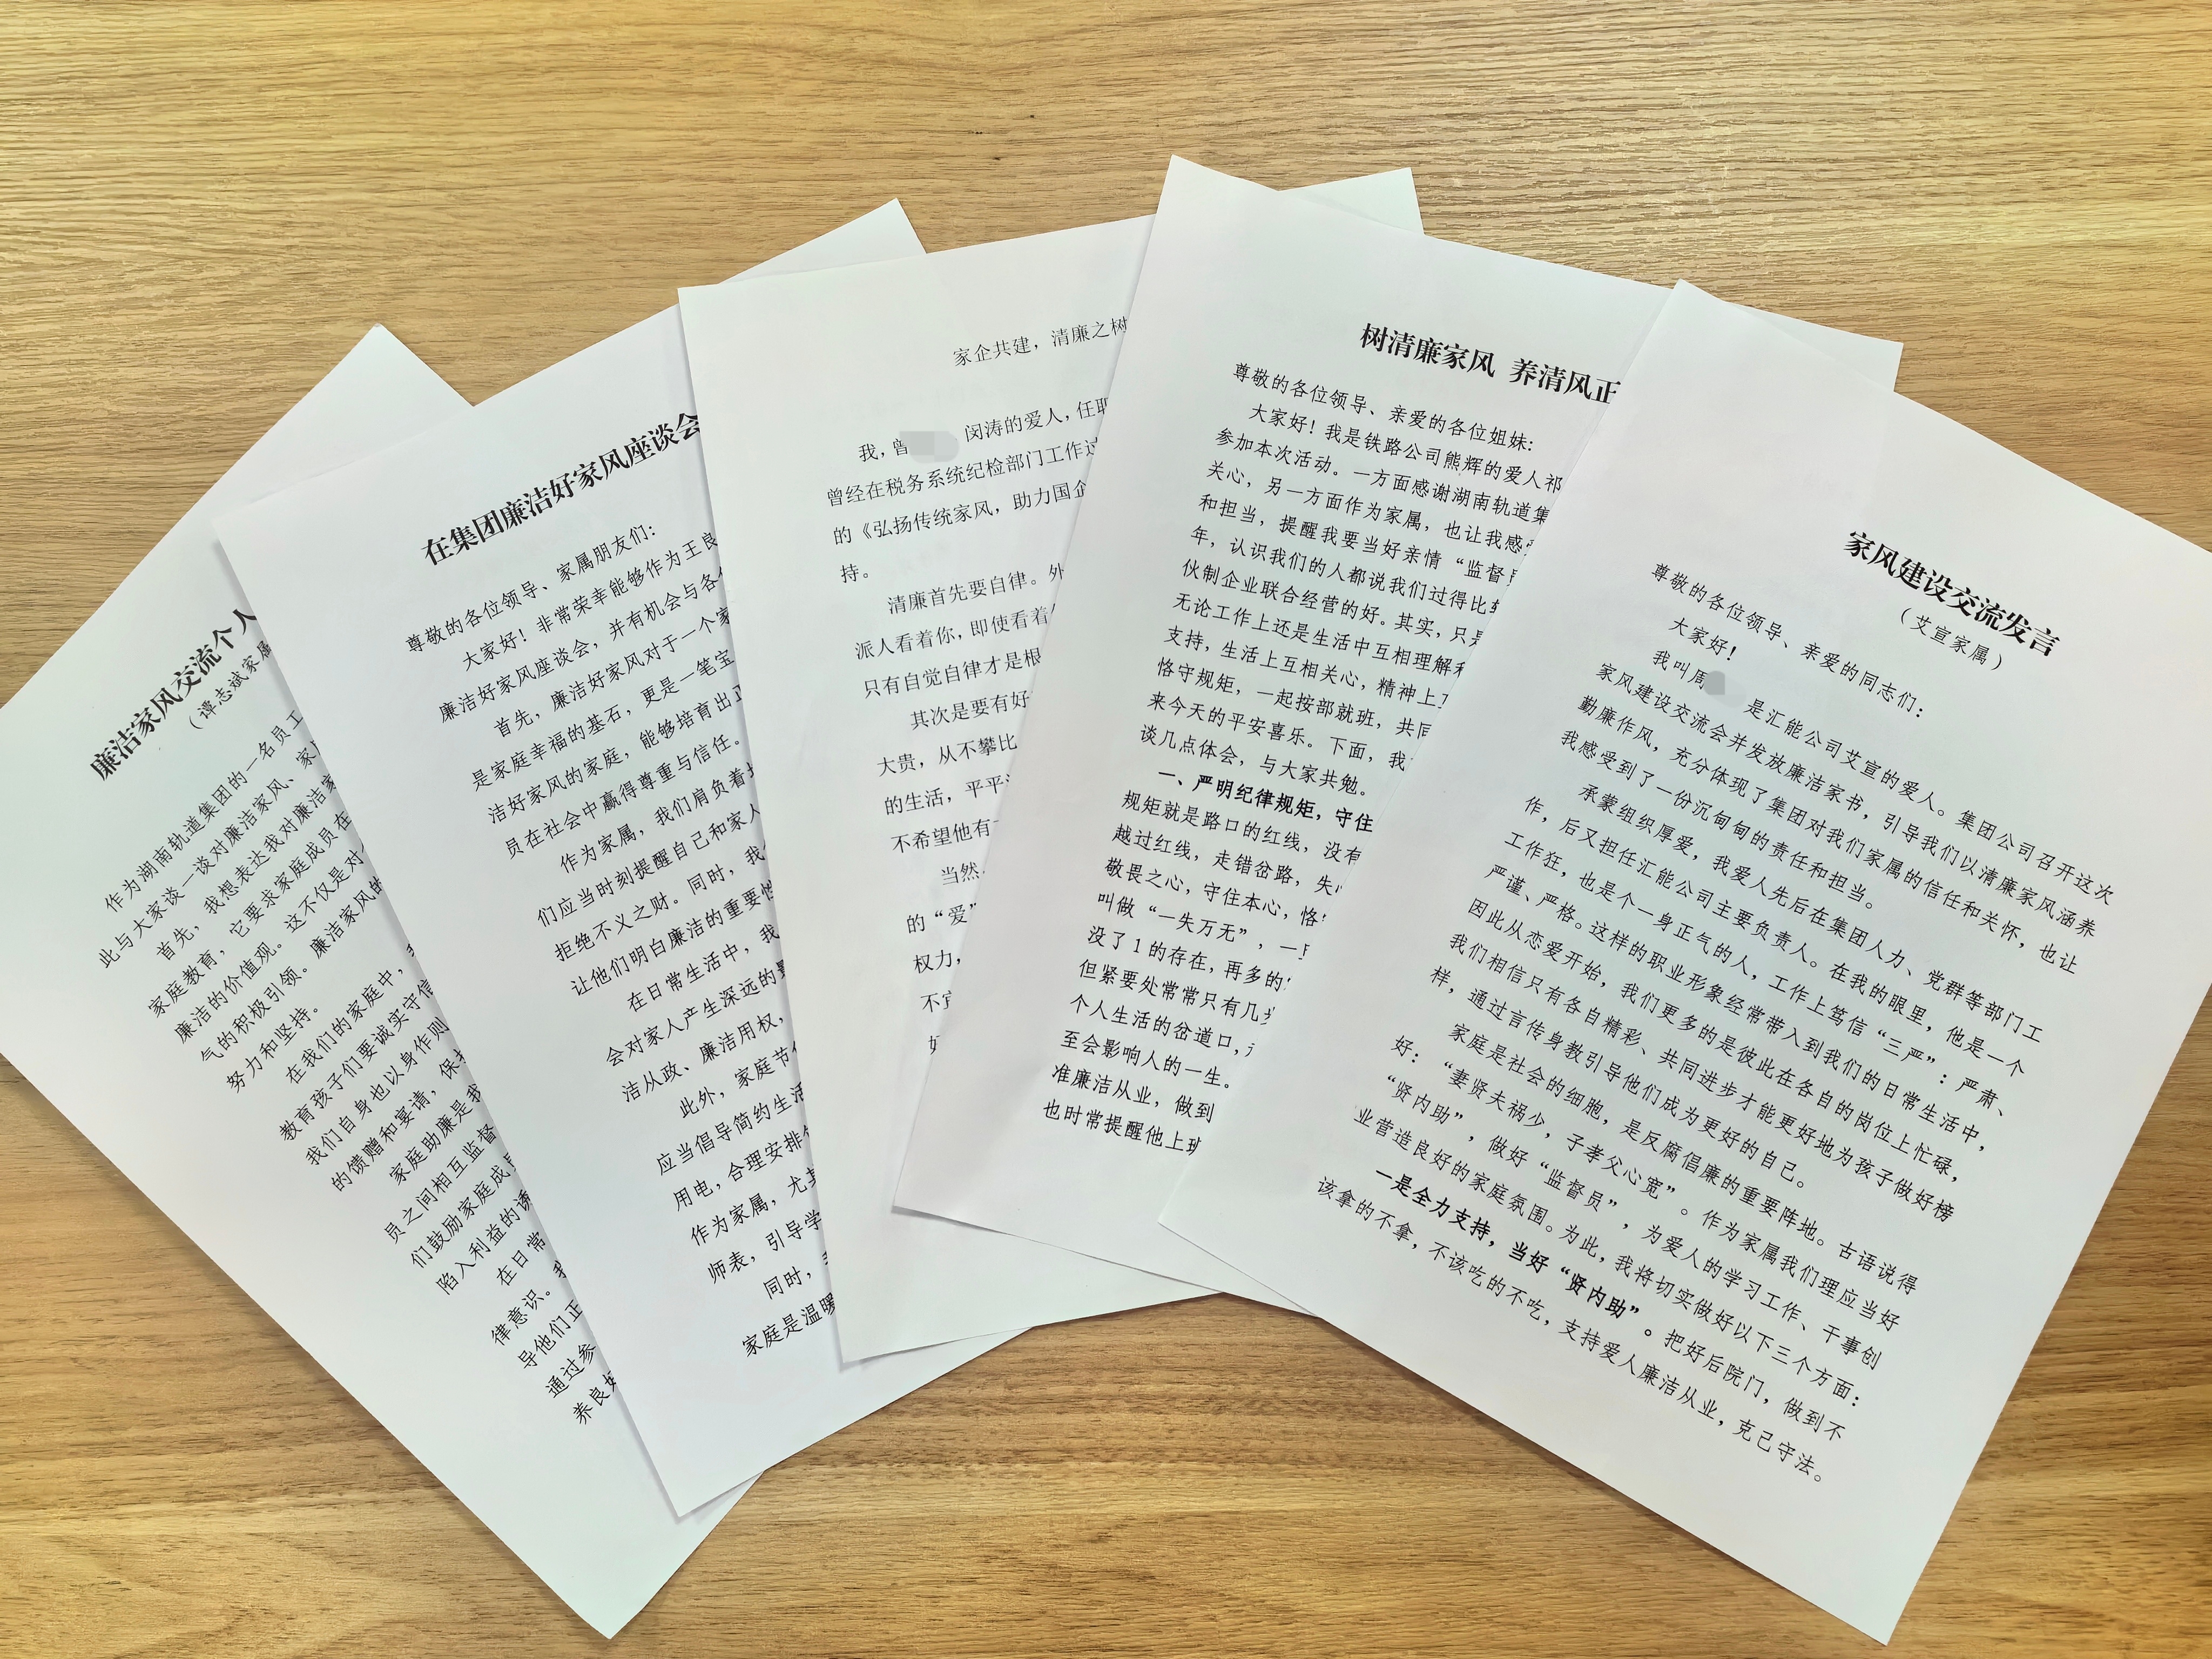 廉洁家风交流个人
（谭志斌家属
作为湖南轨道集团的一名员工
此与大家谈一谈对廉洁家风、家
首先，我想表达我对廉洁家
家庭教育，它要求家庭成员在
廉洁的价值观。这不仅是对
气的积极引领。廉洁家风的
努力和坚持。
在我们的家庭中，
教育孩子们要诚实守信
我们自身也以身作则
的馈赠和宴请，保
家庭助廉是我
员之间相互监督
们鼓励家庭成
陷入利益的诱
在日常
律意识。我
导他们正
通过参
养良好
在集团廉洁好家风座谈会
尊敬的各位领导、家属朋友们：
大家好！非常荣幸能够作为王良
廉洁好家风座谈会，并有机会与各
首先，廉洁好家风对于一个家
是家庭幸福的基石，更是一笔宝
洁好家风的家庭，能够培育出正
员在社会中赢得尊重与信任。
作为家属，我们肩负着
们应当时刻提醒自己和家人
拒绝不义之财。同时，我
让他们明白廉洁的重要性
在日常生活中，我
会对家人产生深远的影
洁从政、廉洁用权，
此外，家庭节
应当倡导简约生活
用电，合理安排
作为家属，尤其
师表，引导学
同时，
家庭是温暖
家企共建，清廉之树
我，曾 闵涛的爱人，任职
曾经在税务系统纪检部门工作过
的《弘扬传统家风，助力国企
持。
清廉首先要自律。外
派人看着你，即使看着
只有自觉自律才是根
其次是要有好
大贵，从不攀比
的生活，平平
不希望他有
当然，
的“爱”
权力，
不宜
好
树清廉家风 养清风正
尊敬的各位领导、亲爱的各位姐妹：
大家好！我是铁路公司熊辉的爱人祁
参加本次活动。一方面感谢湖南轨道集
关心，另一方面作为家属，也让我感受
和担当，提醒我要当好亲情“监督员
年，认识我们的人都说我们过得比较
伙制企业联合经营的好。其实，只是
无论工作上还是生活中互相理解和
支持，生活上互相关心，精神上互
恪守规矩，一起按部就班，共同
来今天的平安喜乐。下面，我
谈几点体会，与大家共勉。
一、严明纪律规矩，守住
规矩就是路口的红线，没有
越过红线，走错岔路，失
敬畏之心，守住本心，恪
叫做“一失万无”，一旦
没了1的存在，再多的
但紧要处常常只有几步
个人生活的岔道口，
至会影响人的一生。
准廉洁从业，做到
也时常提醒他上班
家风建设交流发言
（艾宣家属）
尊敬的各位领导、亲爱的同志们：
大家好！
我叫周 是汇能公司艾宣的爱人。集团公司召开这次
家风建设交流会并发放廉洁家书，引导我们以清廉家风涵养
勤廉作风，充分体现了集团对我们家属的信任和关怀，也让
我感受到了一份沉甸甸的责任和担当。
承蒙组织厚爱，我爱人先后在集团人力、党群等部门工
作，后又担任汇能公司主要负责人。在我的眼里，他是一个
工作狂，也是个一身正气的人，工作上笃信“三严”：严肃、
严谨、严格。这样的职业形象经常带入到我们的日常生活中，
因此从恋爱开始，我们更多的是彼此在各自的岗位上忙碌，
我们相信只有各自精彩、共同进步才能更好地为孩子做好榜
样，通过言传身教引导他们成为更好的自己。
家庭是社会的细胞，是反腐倡廉的重要阵地。古语说得
好：“妻贤夫祸少，子孝父心宽”。作为家属我们理应当好
“贤内助”，做好“监督员”，为爱人的学习工作、干事创
业营造良好的家庭氛围。为此，我将切实做好以下三个方面：
一是全力支持，当好“贤内助”。把好后院门，做到不
该拿的不拿，不该吃的不吃，支持爱人廉洁从业，克己守法。